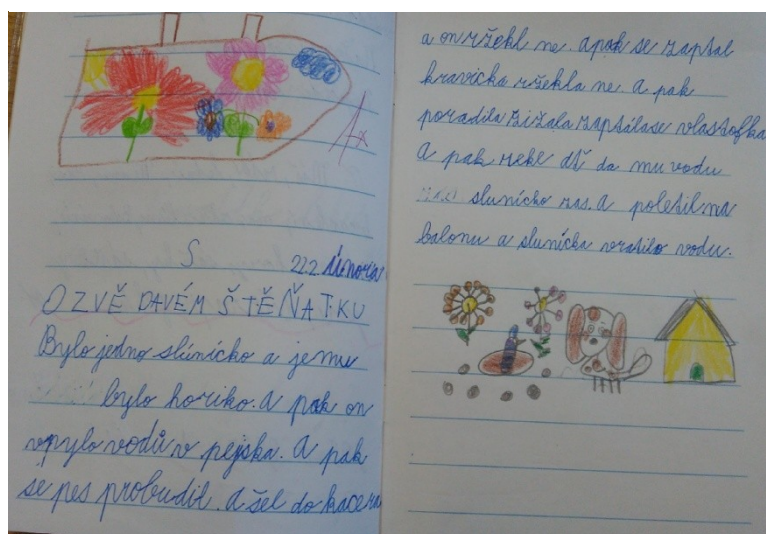 1x
S
22.2 Února
O ZVĚ DAVÉM ŠTĚŇÁTKU
Bylo jedno slúnícko a jemu
bylo horiko. A pak on
vpylo vodů v pejska. A pak
še pes probudil. A šel do kacera
a on ržekl ne. a pak se zaptal
kravicka ršekla ne. A pak
poradila žižala zaptálase vlastofka
A pak rekl dť da mu vodu
slunícko zas. A poletil na
balonu a slunícka vratilo vodu.